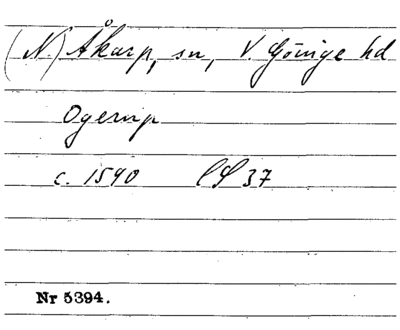 (N.) Åkarp, sn, V. Göinge hd
Ogerup
c. 1590 LS 37
Nr 5394.